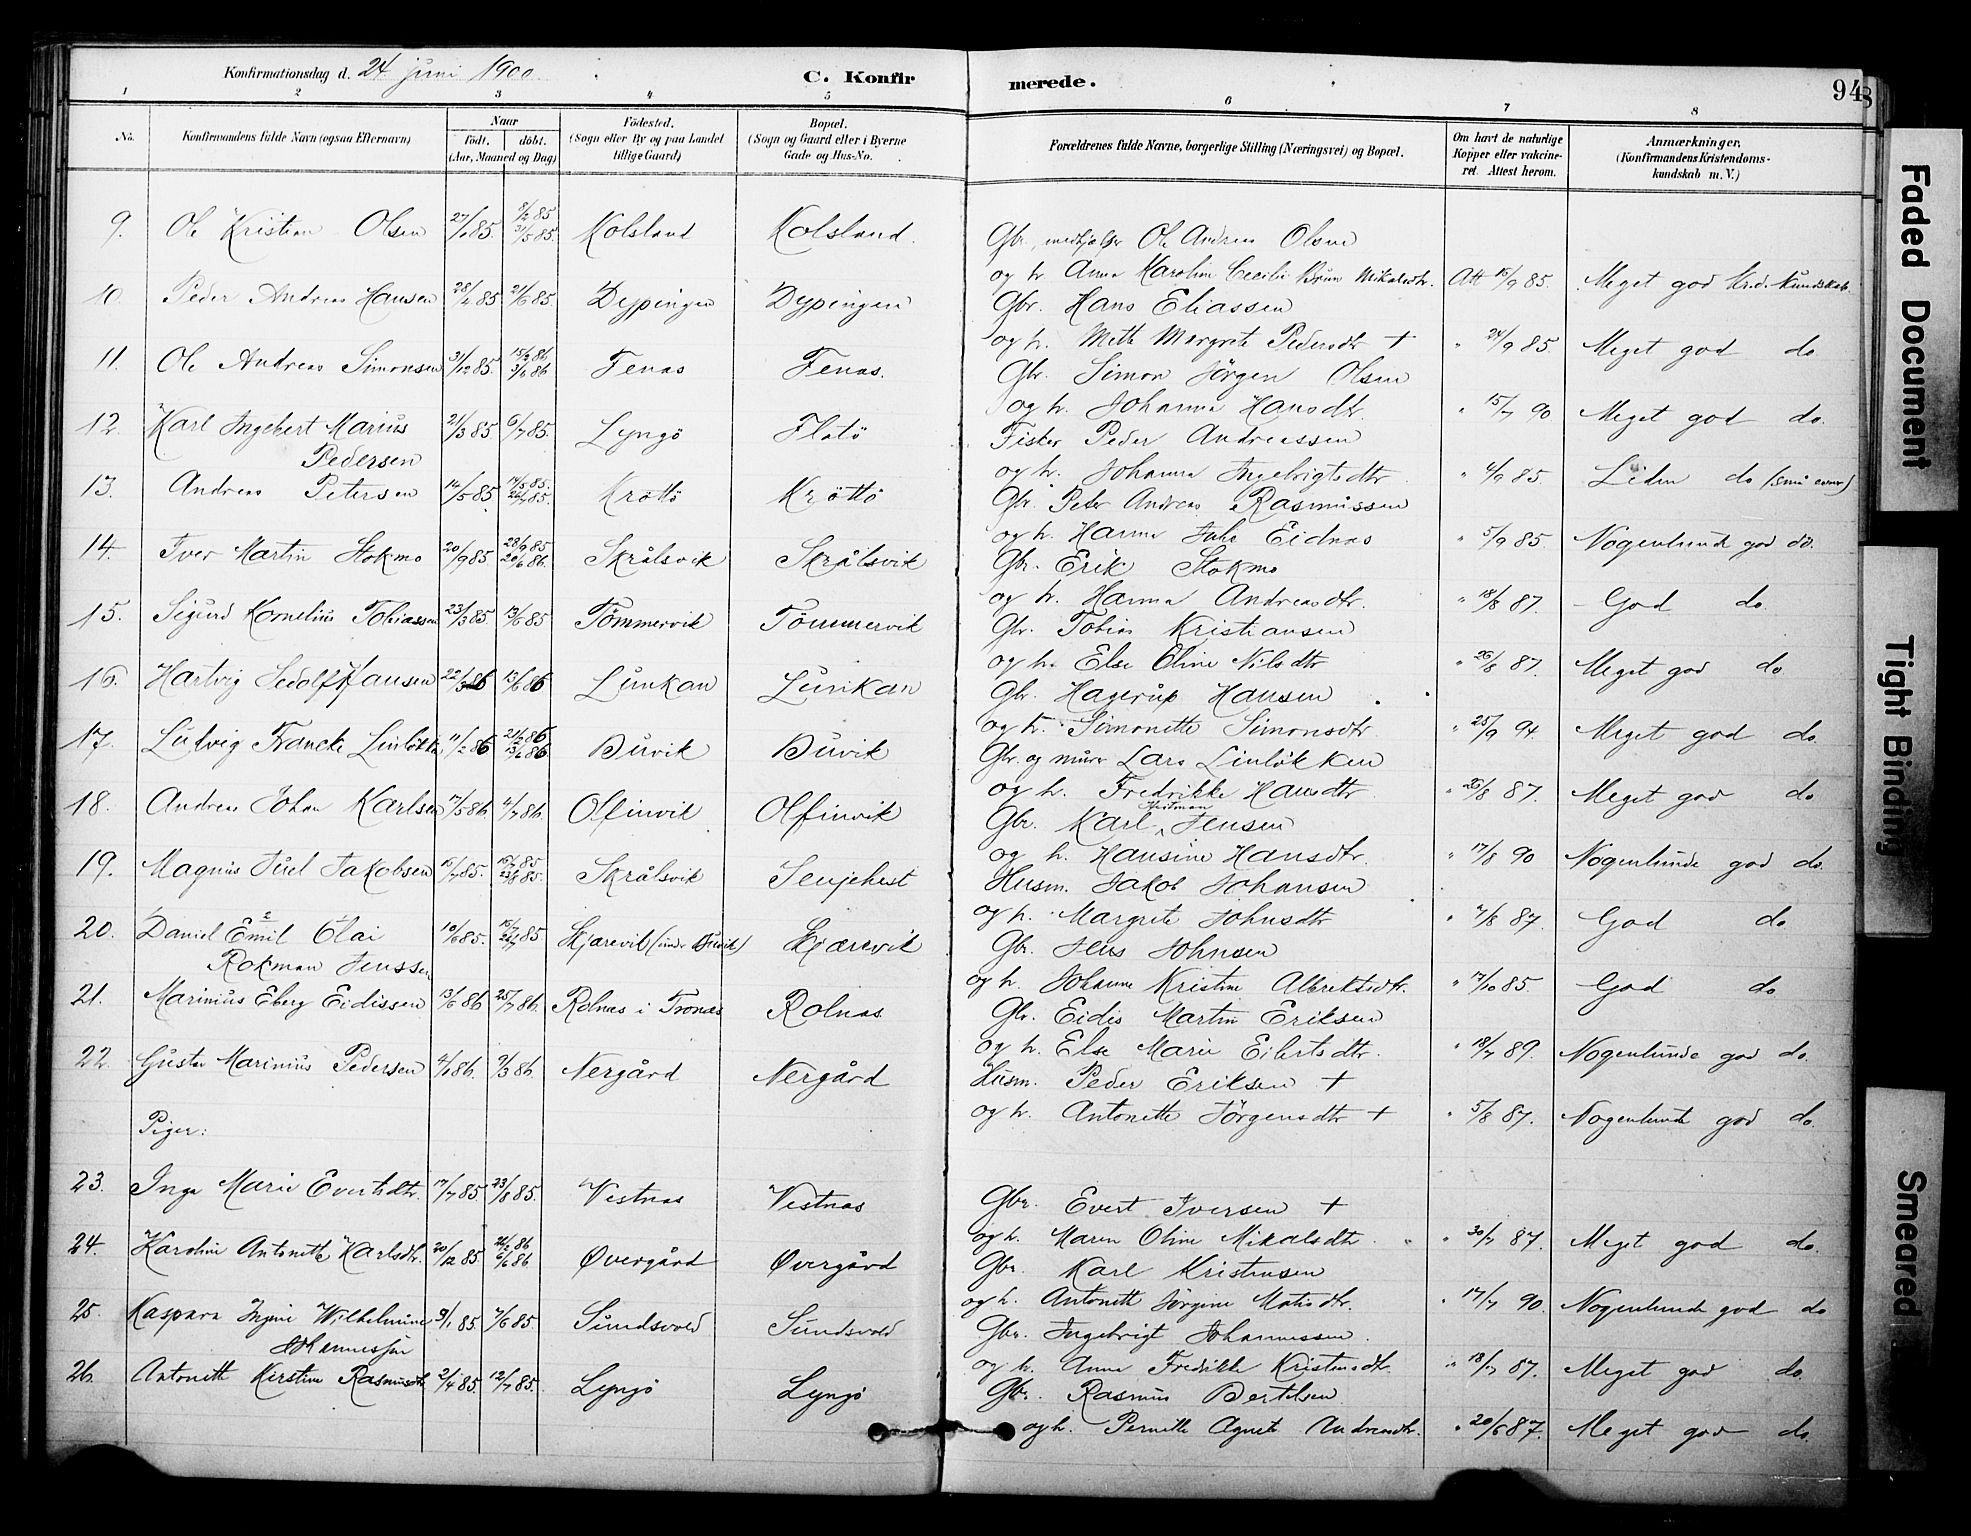 Konfirmationsdag d. 24 juni 1900. C. Konfirmerede. 94
1 2 3 4 5 6 7 8
No. Konfirmandens fulde Navn (ogsaa Efternavn) Naar Födt. döbt. (Aar, Maaned og Dag) Födested. (Sogn eller By og paa Landet tillige Gaard) Bopæl. (Sogn og Gaard eller i Byerne Gade og Hus-No. Forældrenes fulde Navne, borgerlige Stilling (Næringsvei) og Bopæl. Om havt de naturlige Kopper eller vakcineret. Attest herom. Anmærkninger. (Konfirmandens Kristendomskundskab m. V.)
9. Ole Kristian Olsen 27/1 85. 8/2 85 31/5 85. Kolsland Kolsland. Gbr., medhjelper Ole Andreas Olsen
og h. Anna Karoline Cecilie Brun Mikalsdtr. Att 15/9 85. Meget god krd. kundskab.
10. Peder Andreas Hansen 28/4 85 21/6 85. Dypingen Dypingen Gbr. Hans Eliassen
og h. Mette Margrete Pedersdtr + " 24/9 85. Meget god do
11. Ole Andreas Simonsen 31/12 85. 15/2 86 3/6 86 Fenas Fenas. Gbr. Simon Jörgen Olsen
og h. Johanna Hansdtr. " 15/7 90 Meget god do.
12. Karl Ingebert Marius Pedersen 21/3 85 6/7 85. Lyngö Flatö Fisker Peder Andreassen
og h. Johanna Ingebrigtsdtr " 4/9 85. Liden do (små evner)
13. Andreas Petersen 14/5 85. 14/5 85. 26/7 85. Kröttö Kröttö Gbr. Peter Andreas Rasmussen
og h. Hanna Juhl Eidnas " 5/9 85. Nogenlunde god do.
14. Iver Martin Stokmo 20/9 85 28/9 85 20/6 86. Skrålsvik Skrålsvik Gbr. Erik Stokmo
og h. Hanna Andreasdtr. " 18/8 87. God do.
15. Sigurd Kornelius Tobiassen 23/3 85. 13/6 85 Tömmervik Tömmervik Gbr. Tobias Kristiansen
og h. Else Oline Nilsdtr " 26/8 87. Meget god do
16. Hartvig Sedolf Hansen 22/3 86 13/6 86 Lunkan Lunkan Gbr. Hagerup Hansen
og h. Simonette Simonsdtr. " 25/9 94. Meget god do.
17. Ludvig Francke Linlökken 11/2 86 21/2 86 13/6 86 Buvik Buvik Gbr. og murer Lars Linlökken
og h. Fredrikke Hansdtr " 26/8 87. Meget god do
18. Andreas Johan Karlsen 17/5 86 4/7 86. Olfinvik Olfinvik Gbr. Karl Hartman Jensen
og h. Hansine Hansdtr. " 17/8 90 Nogenlunde god do
19. Magnus Juel Jakobsen 15/7 85. 15/7 85 23/8 85. Skrålsvik Senjehest Husm. Jakob Johansen
og h. Margrete Johnsdtr " 7/8 87. God do
20. Daniel Emil Olai Rokman Jenssen 10/6 85. 15/7 26/7 85. Skjærevik (under Buvik) Skjærevik Gbr. Jens Johnsen
og h. Johanne Kristine Albriktsdtr. " 17/10 85. God do
21. Marinius Eberg Eidissen 13/6 86 25/7 86. Rolnas i Tronæs Rolnas Gbr. Eidis Martin Eriksen
og h. Else Marie Eilertsdtr. " 18/7 89. Nogenlunde god do.
22. Gustav Marinius Pedersen 4/1 86. 7/3 86. Nergård Nergård Husm. Peder Eriksen +
og h. Antonette Jörgensdtr + " 5/8 87. Nogenlunde god do.
Piger:
23. Inga Marie Evertsdtr. 17/7 85 23/8 85. Vestnas Vestnas Gbr. Evert Iversen +
og h. Maren Oline Mikalsdtr. " 30/7 87. Meget god do.
24. Karoline Antonette Karlsdtr. 20/12 85. 26/2 86 6/6 86 Øvergård Øvergård Gbr. Karl Kristensen
og h. Antonette Jörgine Matisdtr. " 17/7 90. Nogenlunde god do
25. Kaspara Ingine Wilhelmine Johannessen 9/1 85. 7/6 85. Sundsvold Sundsvold Gbr. Ingebrigt Johannessen.
og h. Anna Fredrikke Kristensdtr. " 18/7 87. Meget god do.
26. Antonette Kirstine Rasmusdtr 2/4 85. 12/7 85. Lyngö Lyngö Gbr. Rasmus Bertelsen
og h. Pernille Agnete Andreasdtr. " 20/6 87. Meget god do.
Faded Document
Tight Binding
Smeared